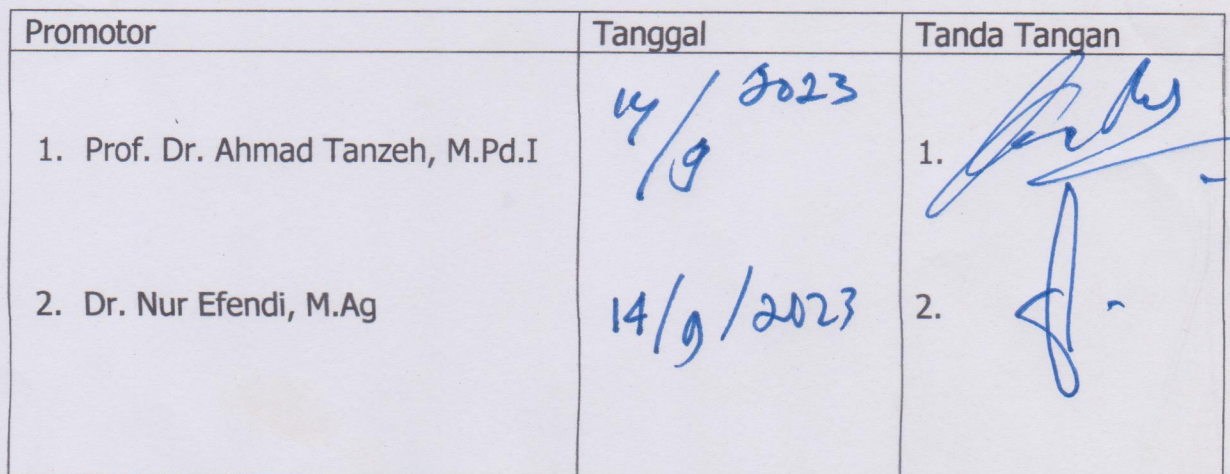 Promotor Tanggal Tanda Tangan
1. Prof. Dr. Ahmad Tanzeh, M.Pd.I 14/9 2023 1.
2. Dr. Nur Efendi, M.Ag 14/9/2023 2.